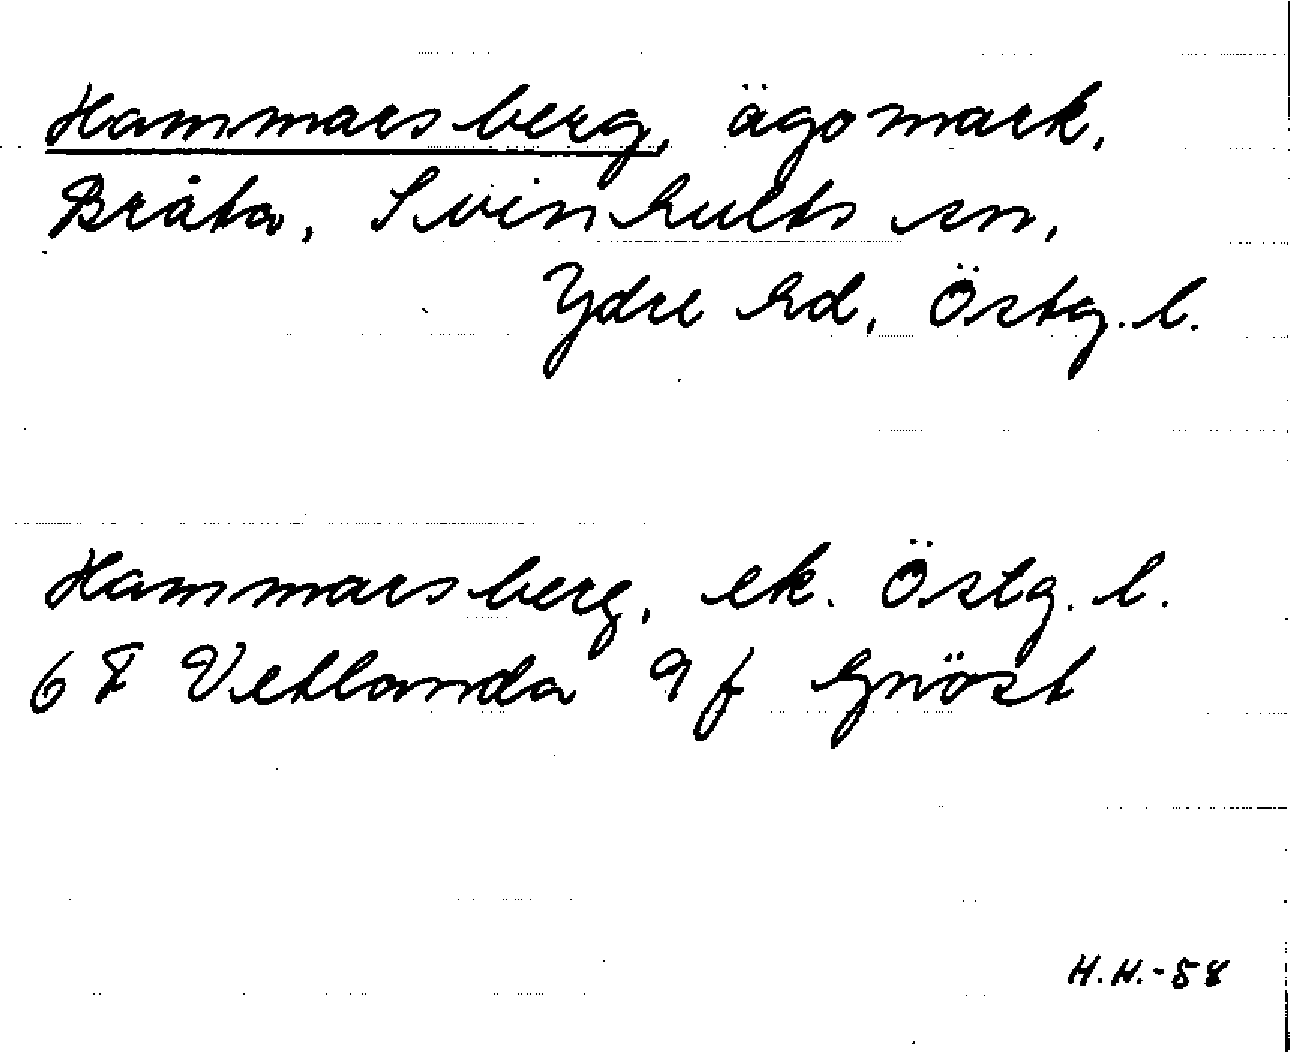 Hammarsberg, ägomark,
Bråta, Svinhults sn,
Ydre hd, Östg. l.
Hammarsberg, ek. Östg. l.
6 F Vetlanda 9 f
H.H.-58